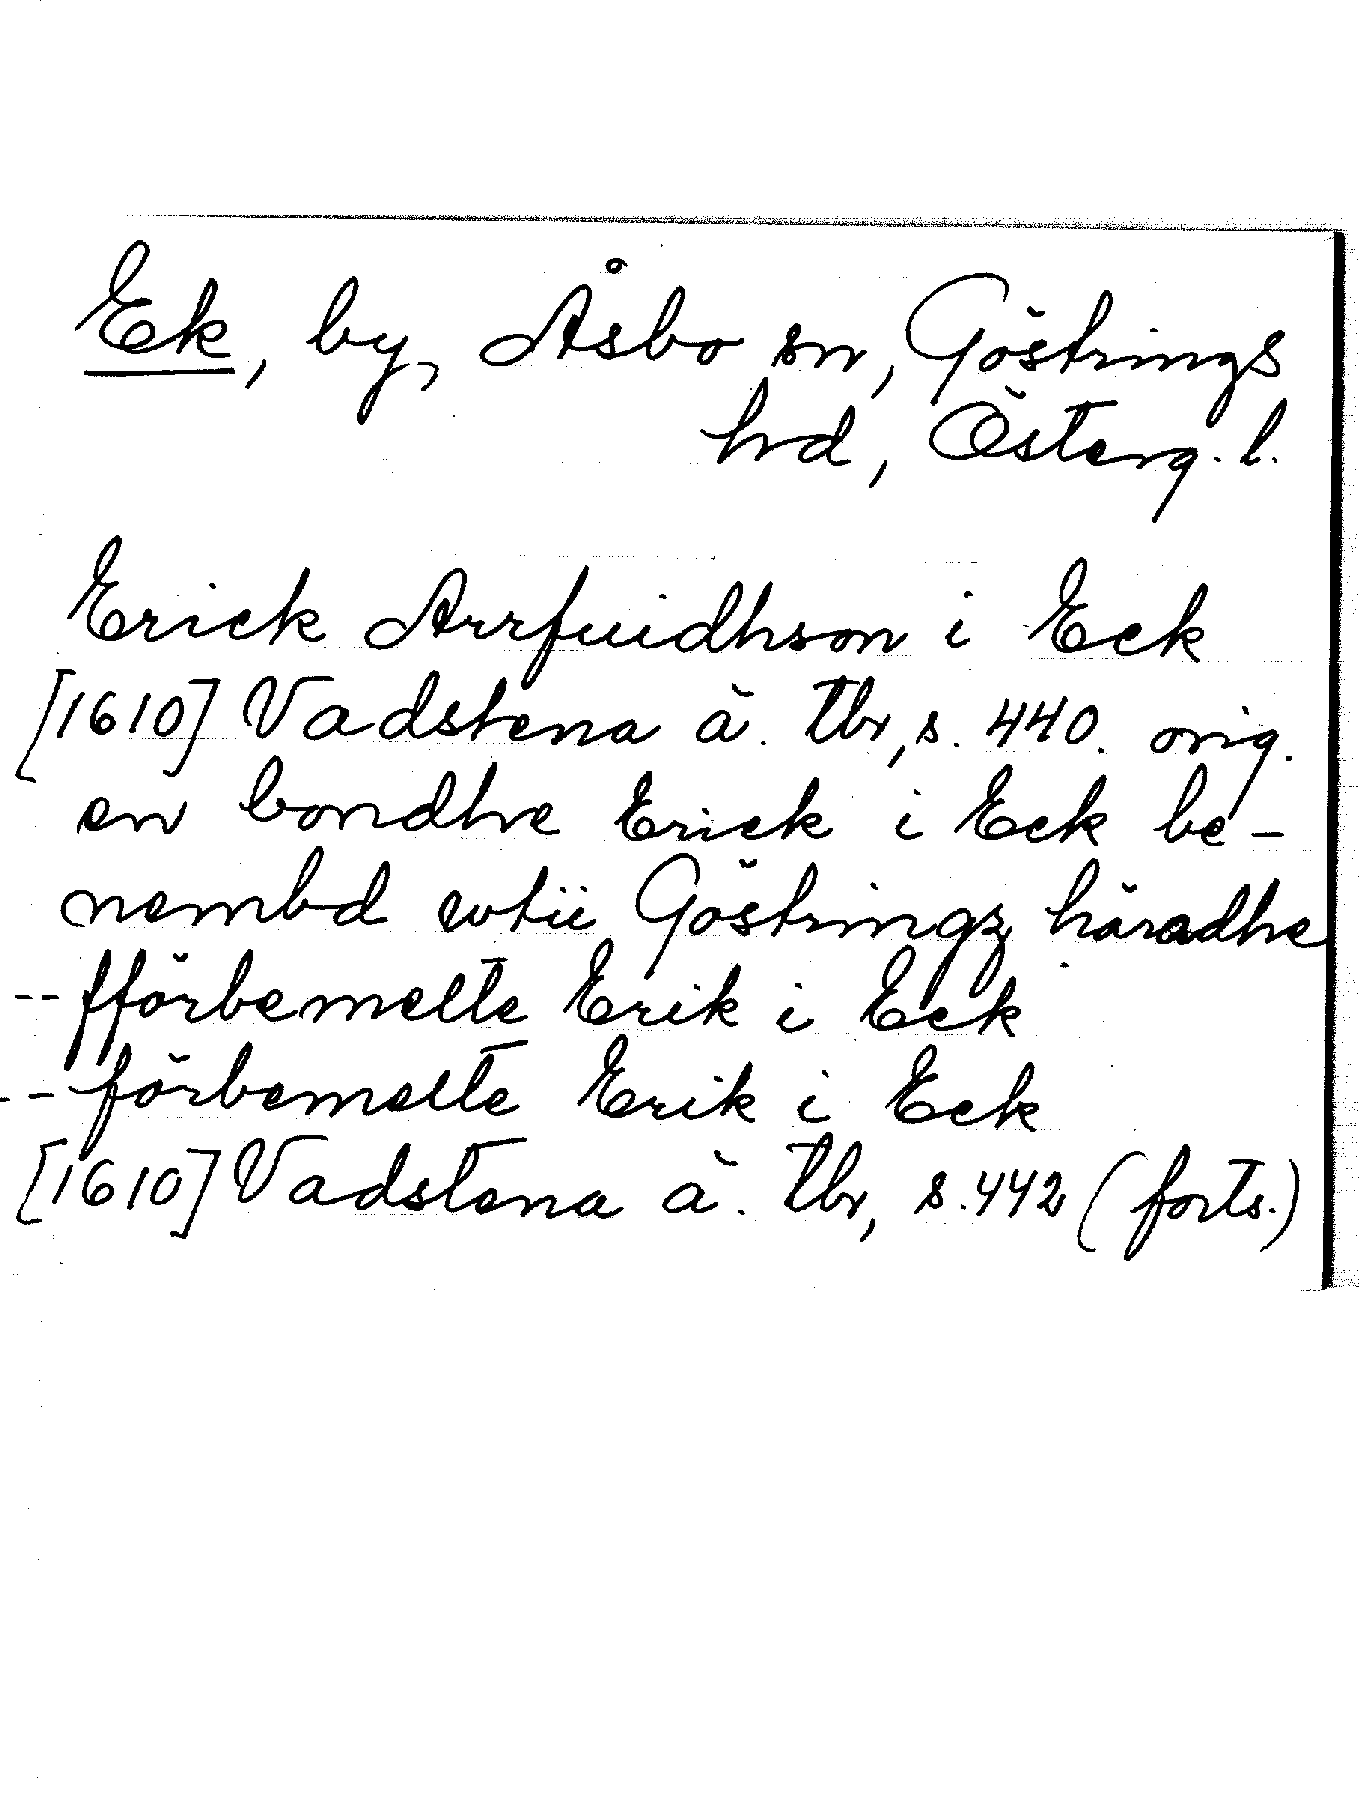 Ek, by, Åsbo sn, Göstrings
hrd, Österg. l.
Erick Arrfuidhson i Eck
[1610] Vadstena ä. tbr, s. 440. orig.
en bondhe Erick i Eck be-
nembd wtii Göstringz häradhe
-- fförbemelte Erik i Eck
-- förbemelte Erik i Eck
[1610] Vadstena ä. tbr, s. 442 (forts.)